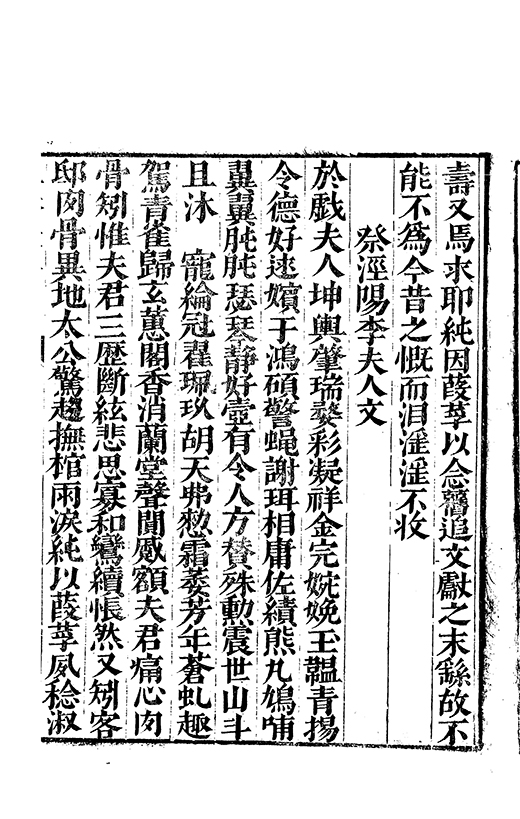 壽又焉求耶純因葭莩以念舊追文獻之末繇故不
能不爲今昔之慨而泪淫淫不收
祭涇陽李夫人文
於戱夫人坤輿肇瑞婺彩凝祥金完婉娩玉韞青揚
令德好逑嬪于鴻碩警蝇謝珥相庸佐績熊丸鳩哺
翼翼肫肫瑟琴靜好壼有令人方贊殊勲震世山斗
且沐　寵綸冠翟珮玖胡天弗慭霜萎芳年蒼虬趣
駕青雀歸玄蕙閣香消蘭堂聲闃慼額夫君痛心肉
骨矧惟夫君三歷斷絃悲思寡和鸞續悵然又矧客
邸肉骨異地太公驚趨撫棺雨淚純以葭莩夙稔淑